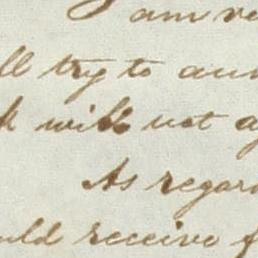 I am ve
ll try to
k will not a
As regar
uld receive f